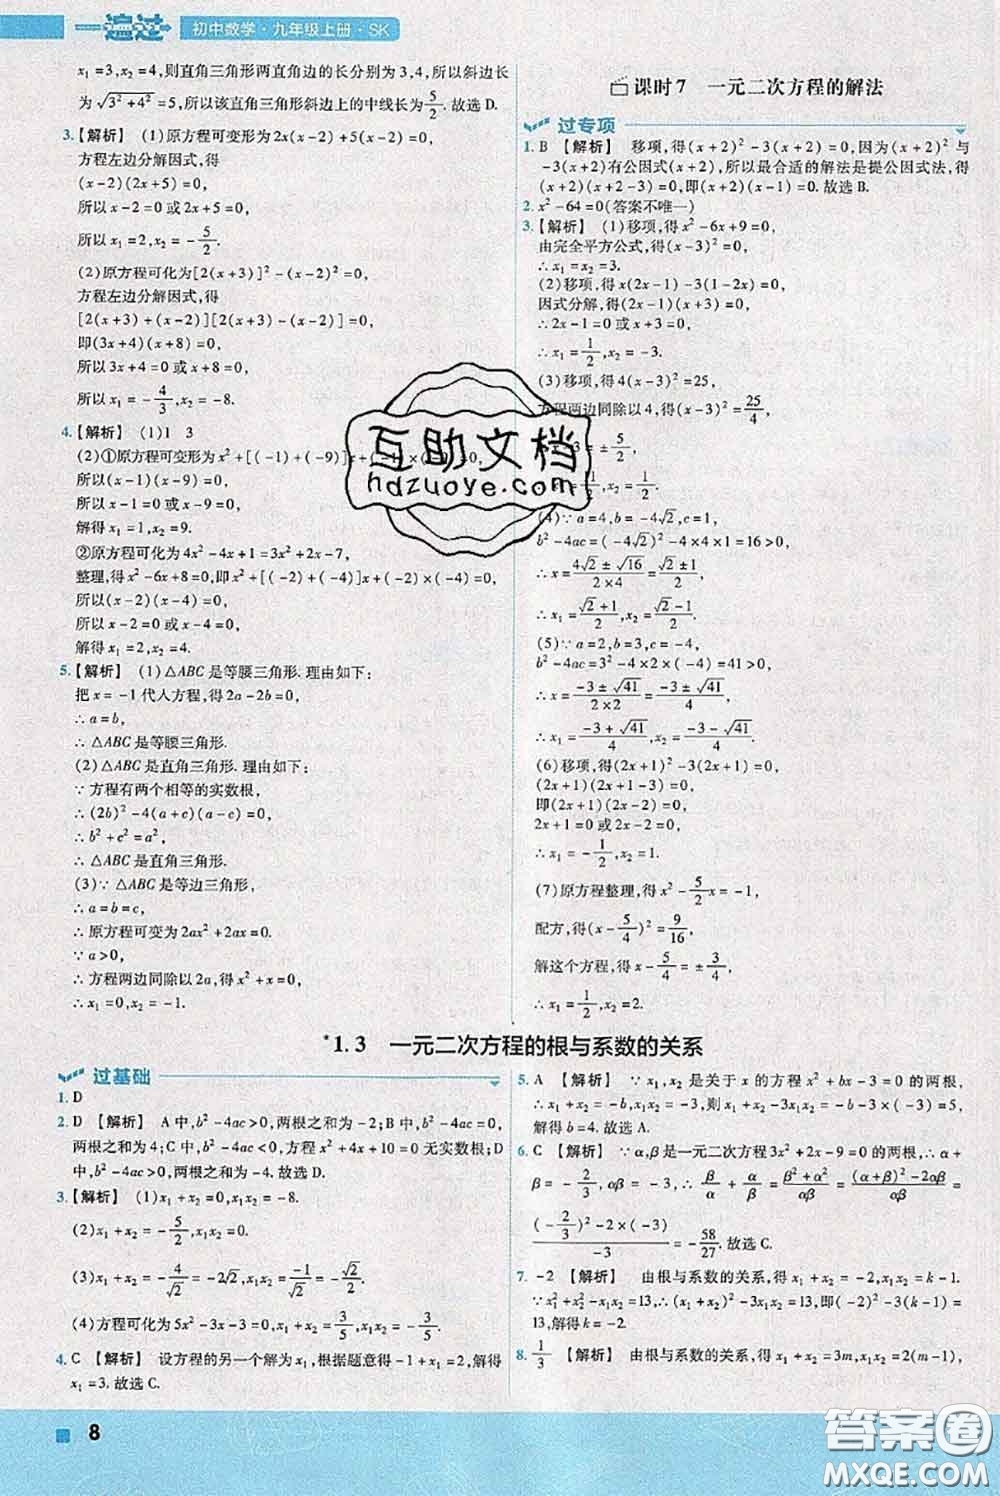 一遍过 初中数学·九年级上册·SK
x₁=3,x₂=4,则直角三角形两直角边的长分别为3,4,所以斜边长
为√(3²+4²)=5,所以该直角三角形斜边上的中线长为5/2.故选D.
3.【解析】 (1)原方程可变形为2x(x-2)+5(x-2)=0,
方程左边分解因式,得
(x-2)(2x+5)=0,
所以x-2=0或2x+5=0,
所以x₁=2,x₂=-5/2.
(2)原方程可化为[2(x+3)]²-(x-2)²=0,
方程左边分解因式,得
[2(x+3)+(x-2)][2(x+3)-(x-2)]=0,
即(3x+4)(x+8)=0,
所以3x+4=0或x+8=0,
所以x₁=-4/3,x₂=-8.
4.【解析】 (1)1 3
(2)①原方程可变形为x²+[(-1)+(-9)]x+(-1)×(-9)=0,
所以(x-1)(x-9)=0,
所以x-1=0或x-9=0,
解得x₁=1,x₂=9.
②原方程可化为4x²-4x+1=3x²+2x-7,
整理,得x²-6x+8=0,即x²+[(-2)+(-4)]x+(-2)×(-4)=0,
所以(x-2)(x-4)=0,
所以x-2=0或x-4=0,
解得x₁=2,x₂=4.
5.【解析】 (1)△ABC是等腰三角形.理由如下:
把x=-1代入方程,得2a-2b=0,
∴a=b,
∴△ABC是等腰三角形.
(2)△ABC是直角三角形.理由如下:
∵方程有两个相等的实数根,
∴(2b)²-4(a+c)(a-c)=0,
∴b²+c²=a²,
∴△ABC是直角三角形.
(3)∵△ABC是等边三角形,
∴a=b=c,
∴原方程可变为2ax²+2ax=0.
∵a>0,
∴方程两边同除以2a,得x²+x=0,
∴x₁=0,x₂=-1.
课时7 一元二次方程的解法
过专项
1. B 【解析】 移项,得(x+2)²-3(x+2)=0,因为(x+2)²与
-3(x+2)有公因式(x+2),所以最合适的解法是提公因式法,得
(x+2)(x+2-3)=0,即(x+2)(x-1)=0.故选B.
2. x²-64=0(答案不唯一)
3.【解析】 (1)移项,得x²-6x+9=0,
由完全平方公式,得(x-3)²=0,
∴x₁=x₂=3.
(2)移项,得x(2x-1)-3(1-2x)=0,
因式分解,得(2x-1)(x+3)=0,
∴2x-1=0或x+3=0,
∴x₁=1/2,x₂=-3.
(3)移项,得4(x-3)²=25,
方程两边同除以4,得(x-3)²=25/4,
=±5/2,
(4)∵a=4,b=-4√2,c=1,
b²-4ac=(-4√2)²-4×4×1=16>0,
∴x=(4√2±√16)/(2×4)=(√2±1)/2,
∴x₁=(√2+1)/2,x₂=(√2-1)/2.
(5)∵a=2,b=3,c=-4,
b²-4ac=3²-4×2×(-4)=41>0,
∴x=(-3±√41)/(2×2)=(-3±√41)/4,
∴x₁=(-3+√41)/4,x₂=(-3-√41)/4.
(6)移项,得(2x+1)²-(2x+1)=0,
(2x+1)(2x+1-1)=0,
即(2x+1)(2x)=0,
2x+1=0或2x=0,
∴x₁=-1/2,x₂=0.
(7)原方程整理,得x²-5/2x=-1,
配方,得(x-5/4)²=9/16,
解这个方程,得x-5/4=±3/4,
∴x₁=1/2,x₂=2.
*1.3 一元二次方程的根与系数的关系
过基础
1. D
2. D 【解析】 A中,b²-4ac>0,两根之和为-2;B中,b²-4ac=0,
两根之和为4;C中,b²-4ac<0,方程x²+4x+10=0无实数根;D
中,b²-4ac>0,两根之和为-4.故选D.
3.【解析】 (1)x₁+x₂=0,x₁x₂=-8.
(2)x₁+x₂=-5/2,x₁x₂=0.
(3)x₁+x₂=-4/√2=-2√2,x₁x₂=-1/√2=-√2/2.
(4)方程可化为5x²-3x-3=0,x₁+x₂=3/5,x₁x₂=-3/5.
4. C 【解析】 设方程的另一个解为x₁,根据题意得-1+x₁=2,解得
x₁=3.故选C.
5. A 【解析】 ∵x₁,x₂是关于x的方程x²+bx-3=0的两根,
∴x₁+x₂=-b,x₁x₂=-3,则x₁+x₂-3x₁x₂=-b-3×(-3)=5,
解得b=4.故选A.
6. C 【解析】 ∵α,β是一元二次方程3x²+2x-9=0的两根,∴α+
β=-2/3,αβ=-3,∴β/α+α/β=(β²+α²)/αβ=((α+β)²-2αβ)/αβ=
((-2/3)²-2×(-3))/-3=-58/27.故选C.
7. -2 【解析】 由根与系数的关系,得x₁+x₂=-2,x₁x₂=k-1.
∵x₁²+x₂²-x₁x₂=13,∴(x₁+x₂)²-3x₁x₂=13,即(-2)²-3(k-1)
=13,解得k=-2.
8. 1/3 【解析】 由根与系数的关系,得x₁+x₂=3m,x₁x₂=2(m-1),
8
互助文档
hdzuoye.com
答案圈
MXQE.COM